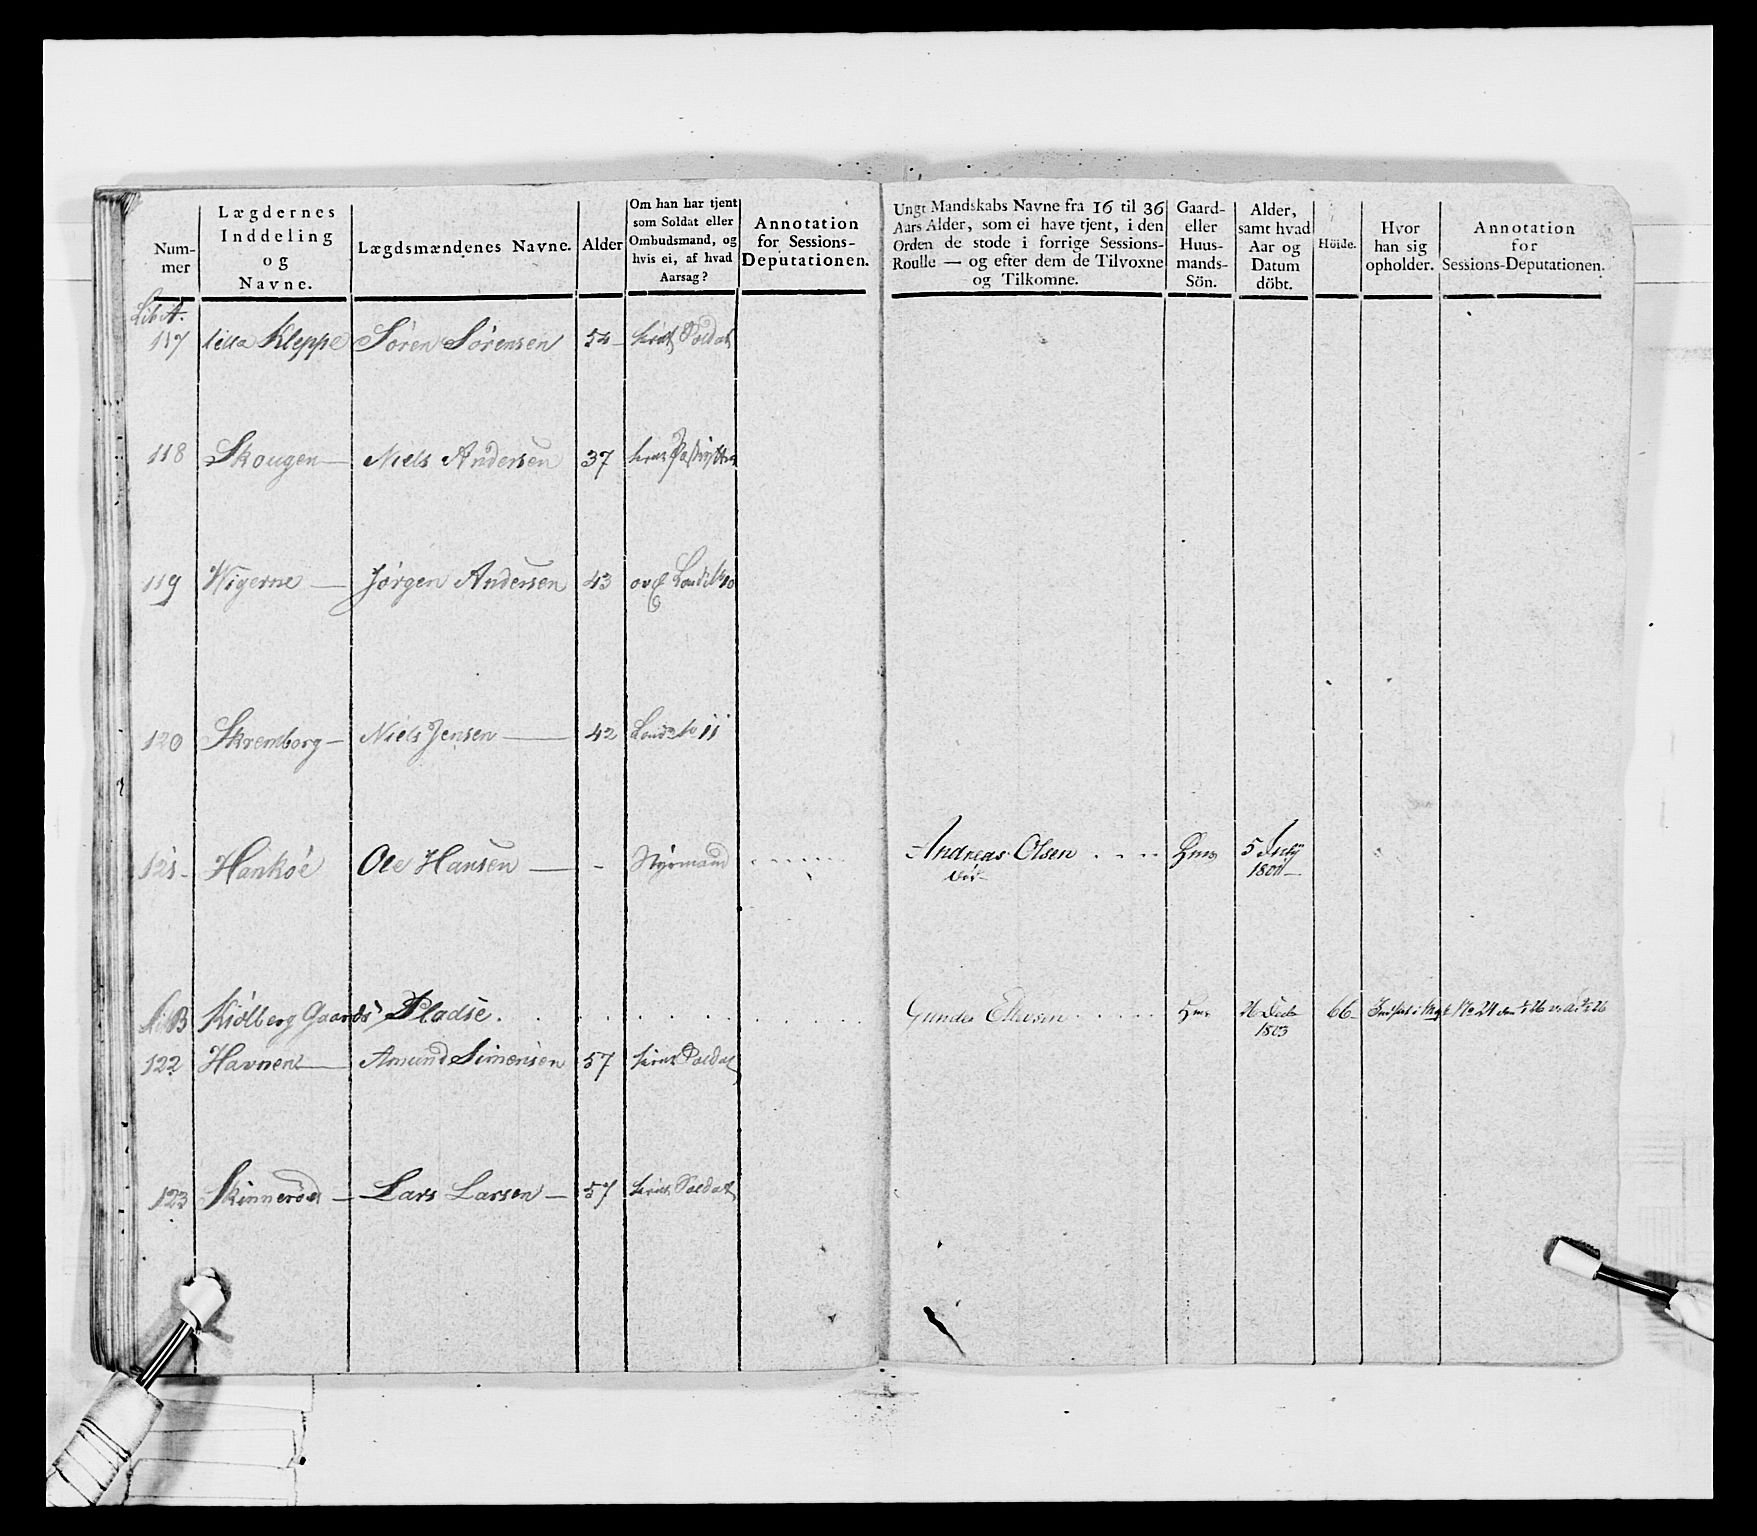 Num-
mer
Lægdernes
Inddeling
og
Navne.
Lægdsmændenes Navne.
Alder
Om han har tjent
som Soldat eller
Ombudsmand, og
hvis ei, af hvad
Aarsag?
Annotation
for Sessions-
Deputationen.
Ungt Mandskabs Navne fra 16 til 36
Aars Alder, som ei have tjent, i den
Orden de stode i forrige Sessions-
Roulle — og efter dem de Tilvoxne
og Tilkomne.
Gaard-
eller
Huus-
mands-
Sön.
Alder,
samt hvad
Aar og
Datum
döbt.
Höide.
Hvor
han sig
opholder.
Annotation
for
Sessions-Deputationen.
Lit A.
117 Kleppe Sören Sörensen 54 Soldat
118 Skougen — Niels Andersen 37
119 Wigerne — Jörgen Andersen 43
120 Skremborg — Niels Jensen — 42 11
121 - Hanköe Ole Hansen — - Styrmand Andreas Olsen Hms 5 July
död 1800
Lit B Kiölberg Gaards Pladse Gunder Ellevsen Hms 26 Decbr 66 No 24
1803
122 Havnen — Amund Simensen 57 Soldat
123 Skinneröd — Lars Larsen — 57 Soldat